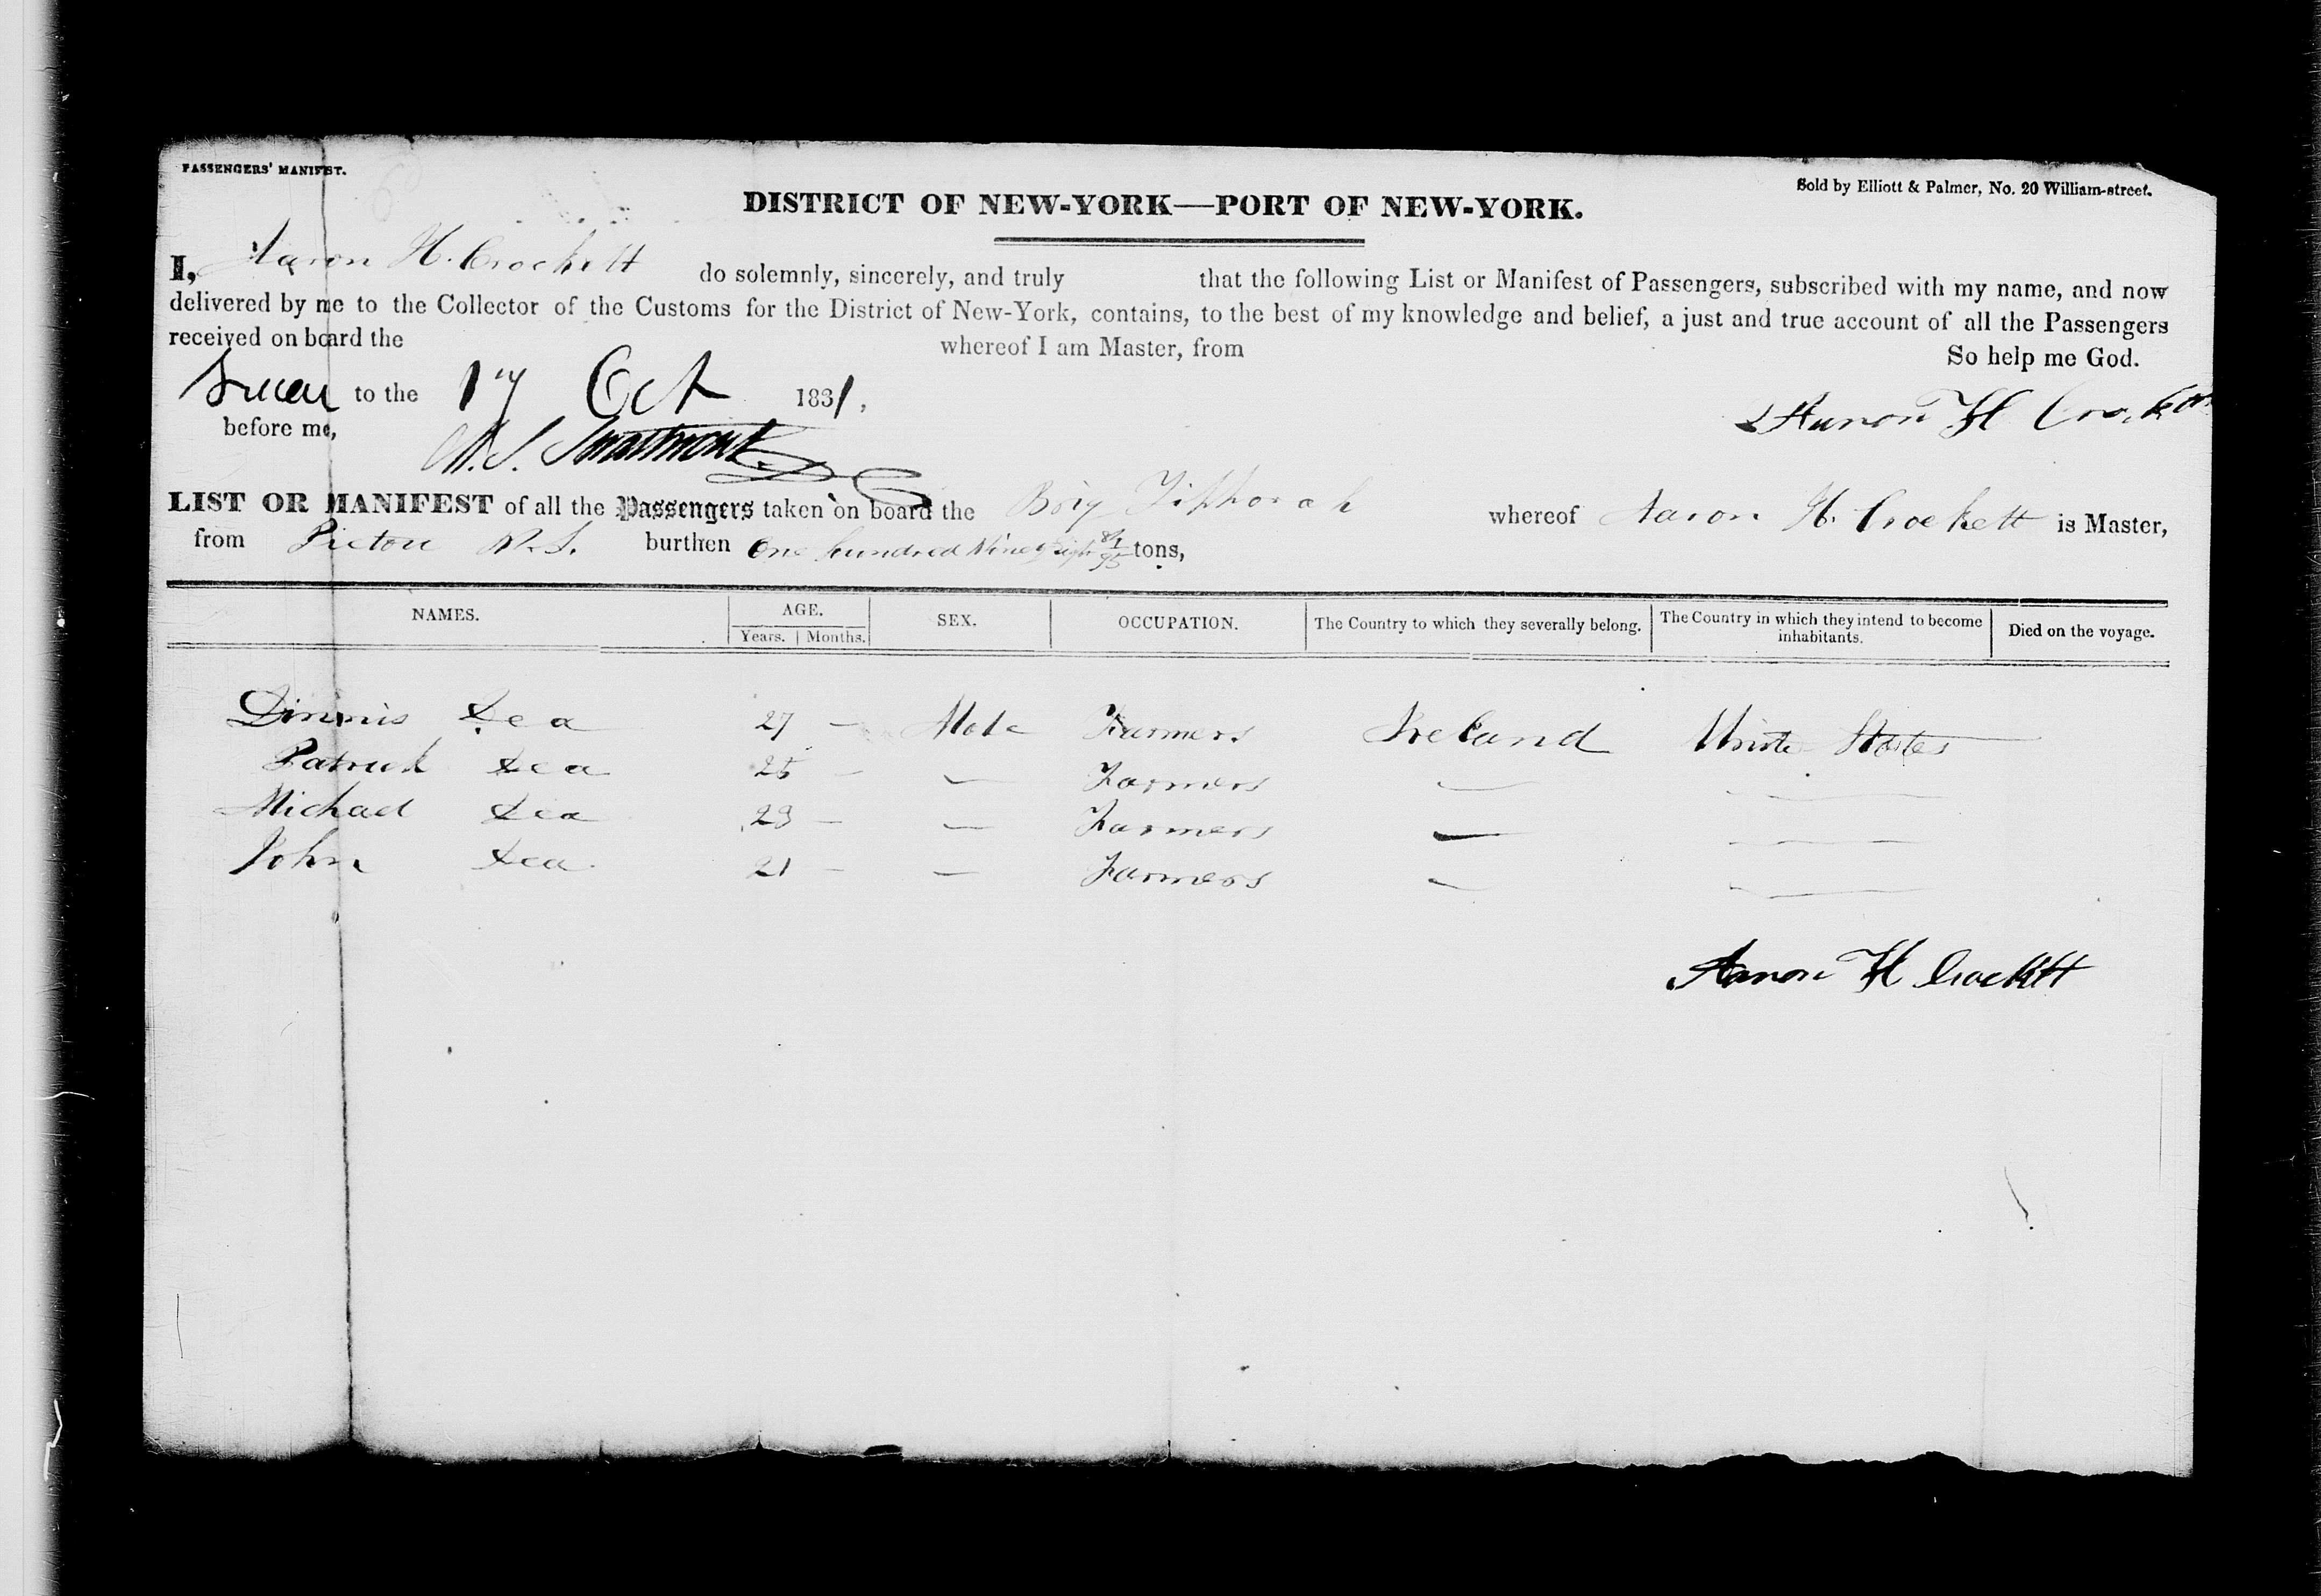 PASSENGERS' MANIFEST.
Sold by Elliott & Palmer, No. 20 William-street.
DISTRICT OF NEW-YORK—PORT OF NEW-YORK.
I, Aaron H. Crockett do solemnly, sincerely, and truly that the following List or Manifest of Passengers, subscribed with my name, and now
delivered by me to the Collector of the Customs for the District of New-York, contains, to the best of my knowledge and belief, a just and true account of all the Passengers
received on board the whereof I am Master, from So help me God.
to the 17 Oct 1831,
Aaron H Crockett
before me,
LIST OR MANIFEST of all the Passengers taken on board the Brig whereof Aaron H. Crockett is Master,
from Pictou N.S. burthen One hundred tons,
NAMES. AGE. SEX. OCCUPATION. The Country to which they severally belong. The Country in which they intend to become inhabitants. Died on the voyage.
Years. Months.
Dinnis Lea 27 — Male Farmers Ireland United States
Patrick Lea 25 — — Farmers — —
Michael Lea 23 — — Farmers — —
John Lea 21 — — Farmers — —
Aaron H Crockett